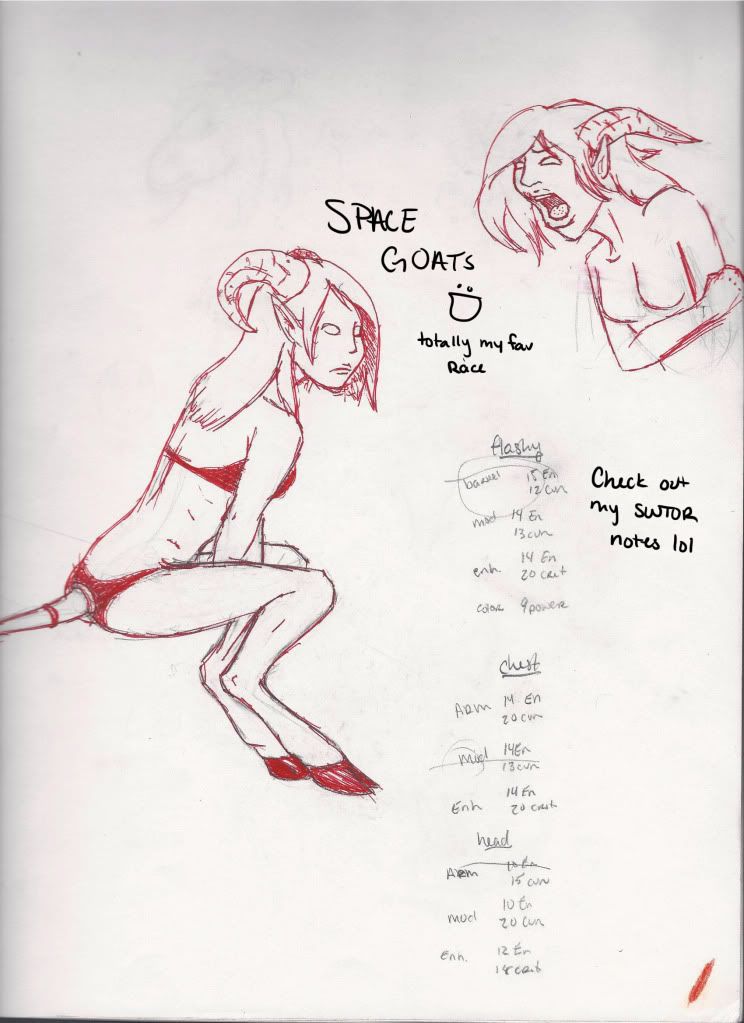 SPACE
GOATS
:D
totally my fav
Race
Check out
my SWTOR
notes lol
flashy
barrel 15 En
12 Cun
mod 14 En
13 cun
enh. 14 En
20 crit
color 9 power
chest
ARM 14 En
20 cun
mod 14 En
13 cun
Enh. 14 En
20 crit
head
ARM 10 En
15 cun
mod 10 En
20 Cun
Enh. 12 En
18 crit